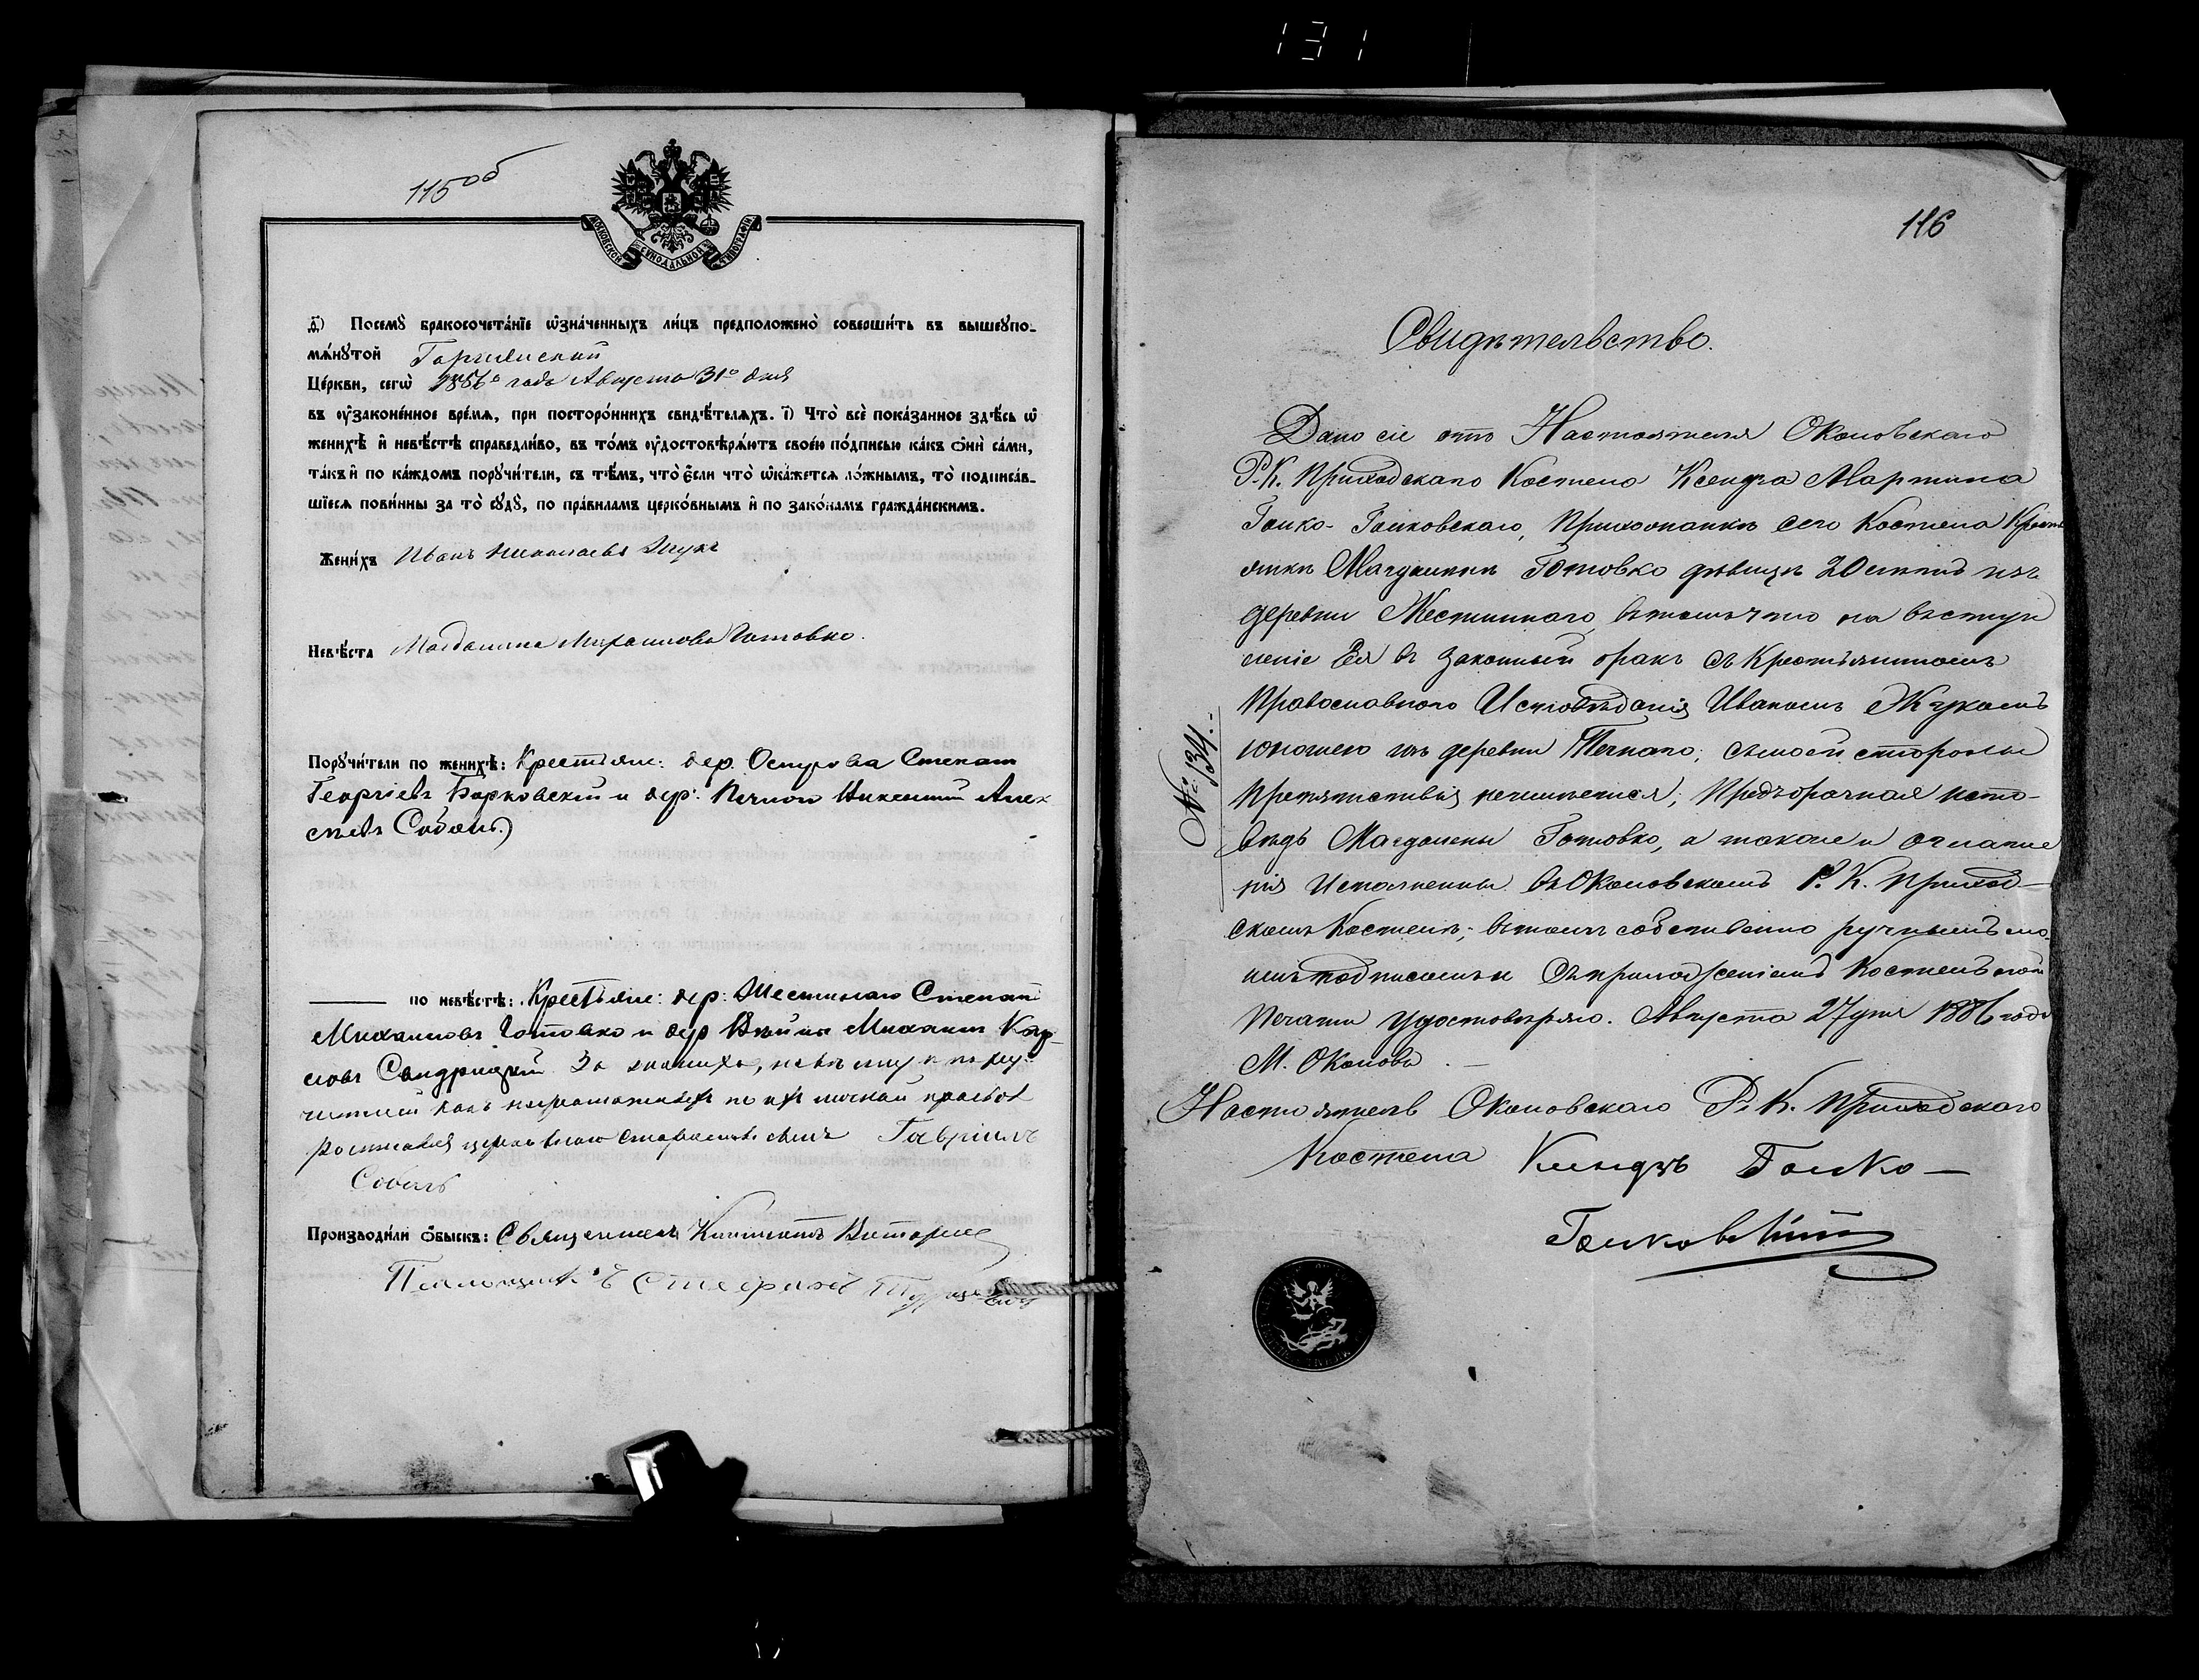 131
115 об
МОСКОВСКОЙ СѴНОДАЛЬНОЙ ТИПОГРАФІИ
Посемꙋ̀ бракосочета́нїе ѡ҆зна́ченныхъ ли́цъ предположено̀ соверши́ть въ вышеꙋпо-
мѧ́нꙋтой
Це́ркви, сегѡ̀ 1886о года Августа 31го дня
въ ᲂу҆зако́ненное вре́мѧ, при посторо́ннихъ свидѣ́телѧхъ. і҃) Что̀ всѐ пока́занное здѣ́сь ѡ҆
женихѣ̀ и҆ невѣ́стѣ справедли́во, въ то́мъ ᲂу҆достовѣрѧ́ютъ свое́ю по́дписью ка́къ ѻ҆нѝ са́ми,
та́къ и҆ по ка́ждомъ порꙋчи́тели, съ тѣ́мъ, что̀ є҆́сли что̀ ѡ҆ка́жетсѧ ло́жнымъ, то̀ подписа́в-
шїесѧ пови́нны за то̀ сꙋдꙋ̀, по пра́виламъ церко́внымъ и҆ по зако́намъ гражда́нскимъ.
Жени́хъ Иванъ Николаевъ Жукъ
Невѣ́ста Магдалина Михаилова Готовко.
Порꙋчи́тели по женихѣ̀: Крестьяне: дер. Острова Степан
Георгіевъ Борковскій и дер: Печного Викентій Алек
сѣевъ Соболь.)
по невѣ́стѣ: Крестьяне: дер: Жестинаго Степанъ
Михаиловъ Готовко и дер Михаилъ Кар-
ловъ За жениха, невѣсту и пору-
чителей какъ неграмотныхъ по ихъ личной просьбѣ
росписался Гавріилъ
Соболь
Производи́ли ѻ҆́быскъ: Священникъ
Псаломщикъ Стефанъ
116
Свидѣтельство.
№ 134.
Дано сіе отъ Настоятеля Околовскаго
Р. К. Приходскаго Костела Ксендза Мартина
Гайко-Гайковскаго, Прихожанкѣ сего Костела Кресть
янкѣ Магдаленѣ Готовко дѣвицѣ 20 лѣтъ изъ
деревни Жестиннаго, въ томъ что на вступ
леніе Ея въ законный бракъ съ Крестьяниномъ
Православного Исповѣданія Иваномъ Жукомъ
юношею изъ деревни Печнаго, съ моей стороны
препятствія неимѣется; Предбрачная испо-
вѣдь Магдалены Готовко, а также и оглаше
нія исполнены въ Околовскомъ Р. К. Приход-
скомъ Костелѣ; въ томъ собственно ручнымъ мо-
имъ подписомъ и съ приложеніемъ Костельной
Печати удостовѣряю. Августа 27 дня 1886 года
М. Околово.
Настоятель Околовскаго Р. К. Приходскаго
Костела Ксендзъ Гайко-
Гайковскій